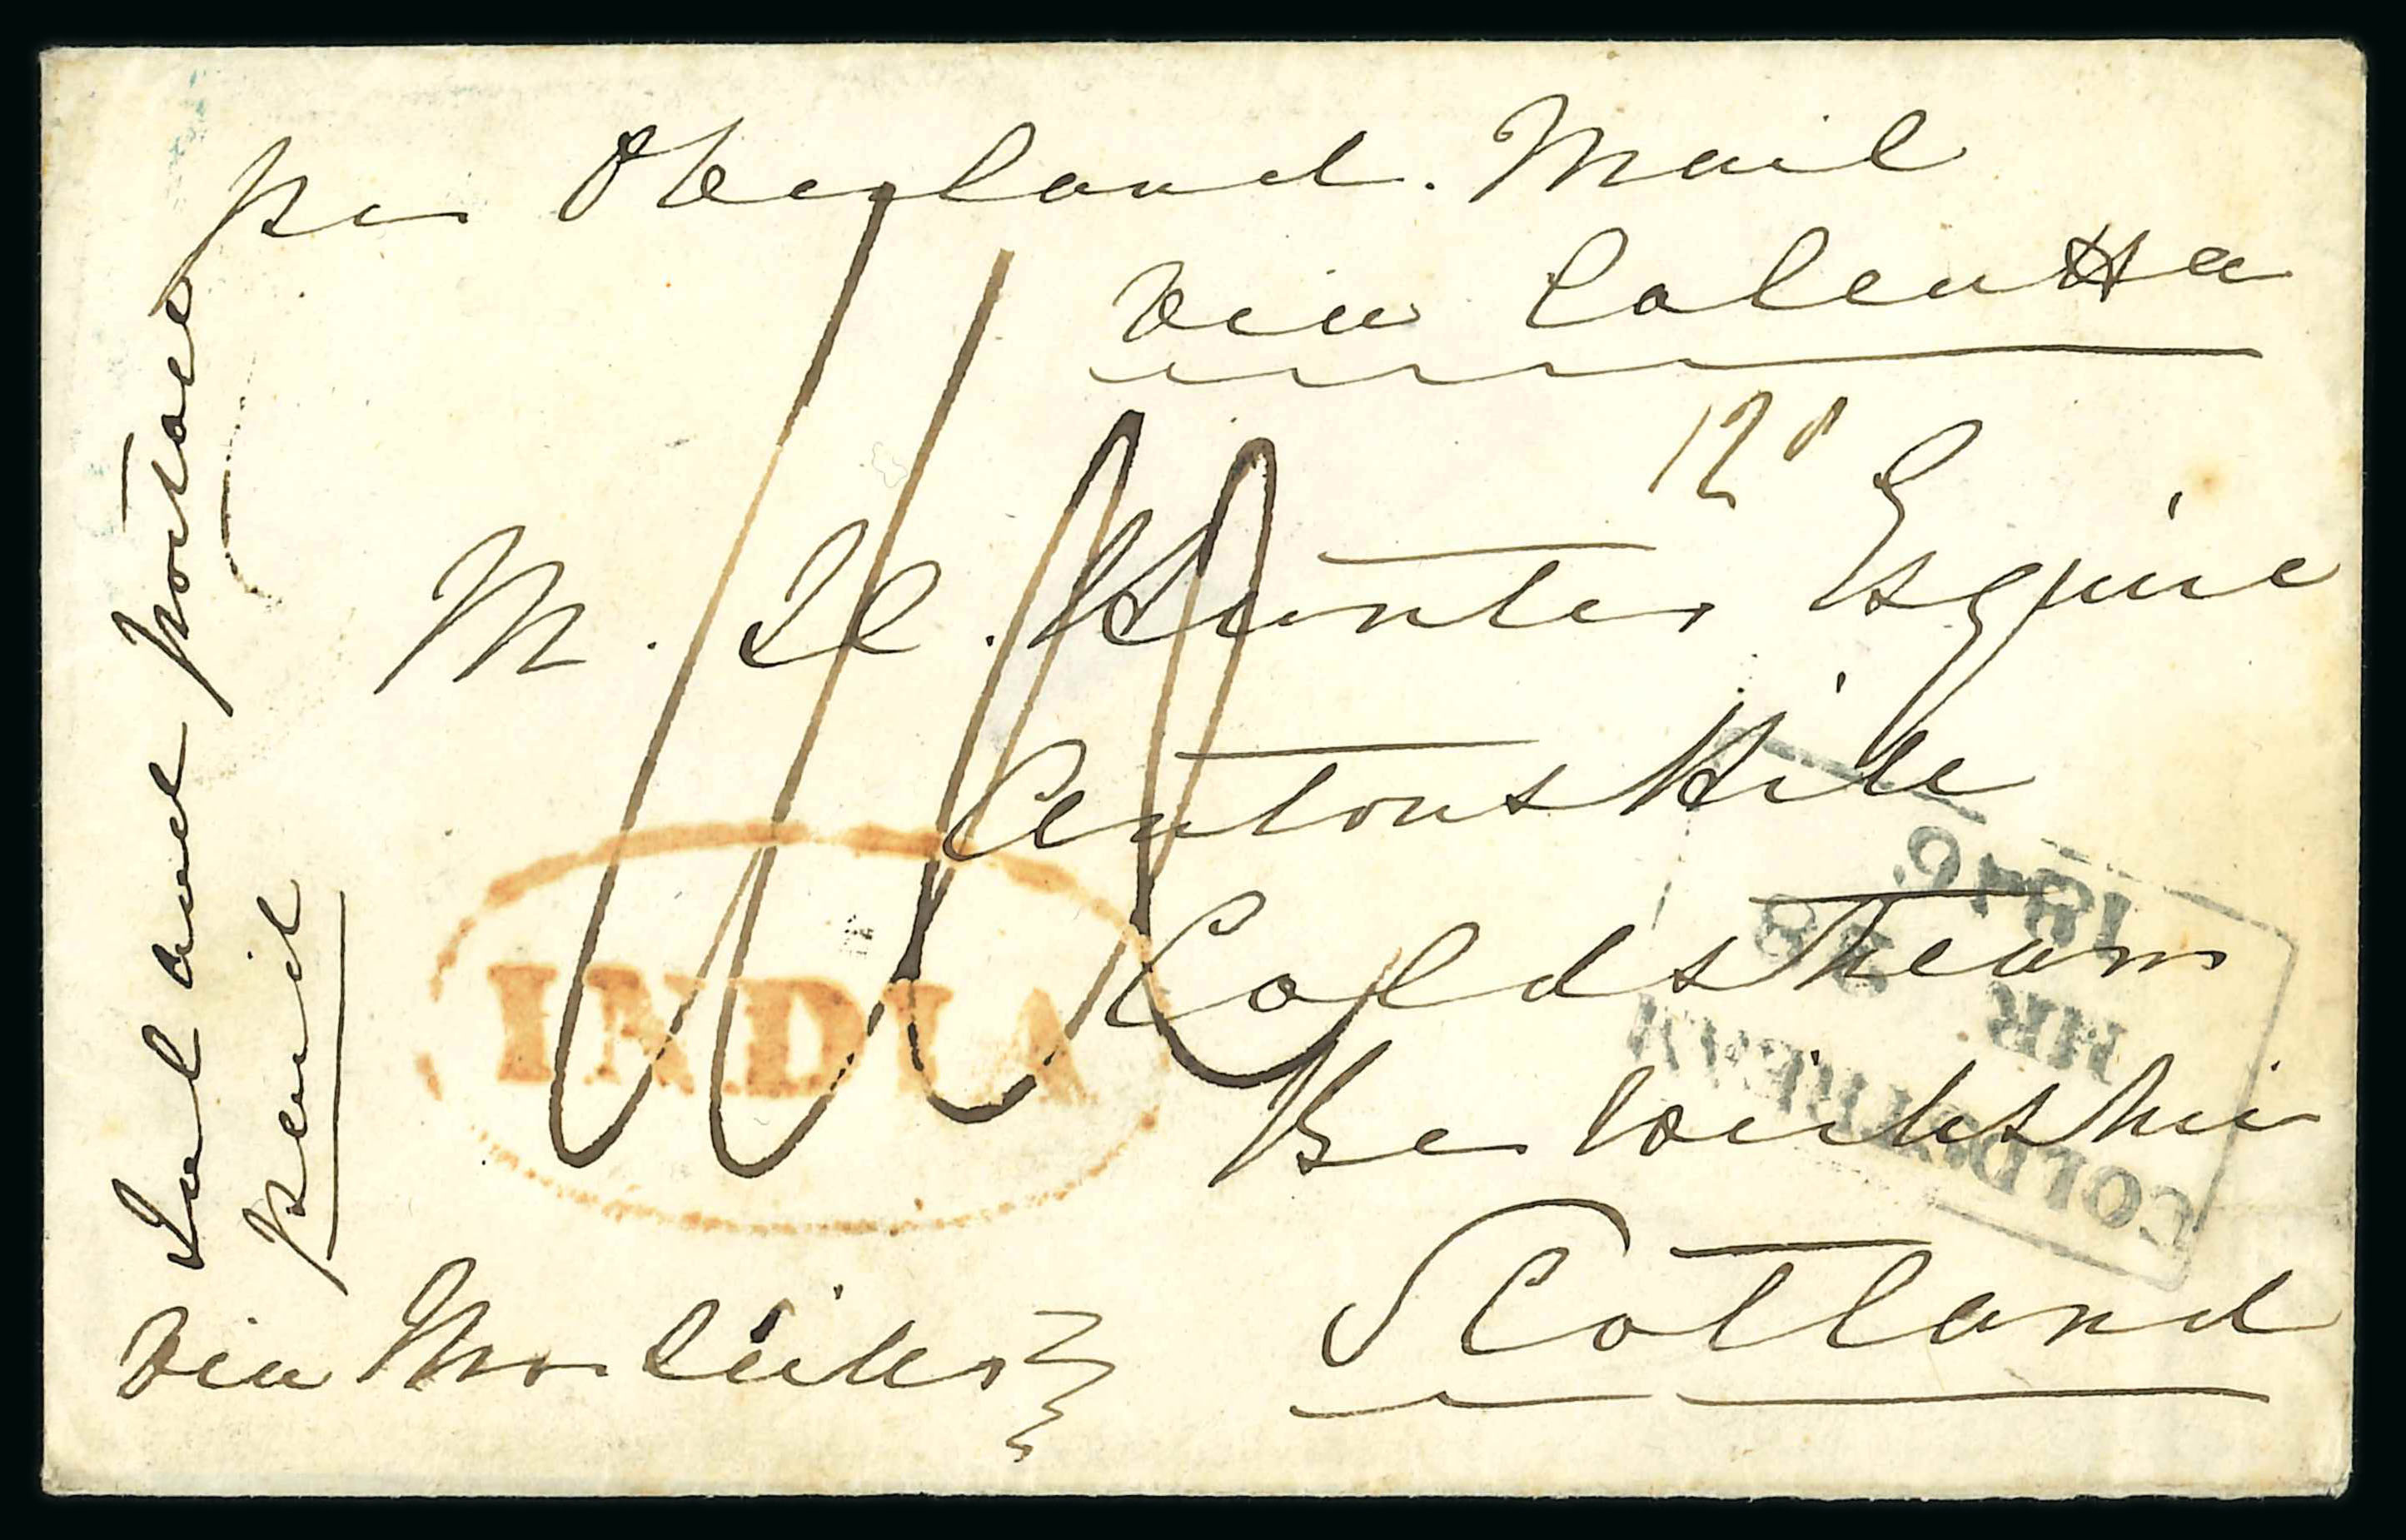 per Overland. Mail
via Calcutta
12
M. H. Hunter Esquire
Antons Hill
Coldstream
Berwickshire
Scotland
via Marseilles
and postage
Paid
INDIA
COLDSTREAM
MR
28
1846